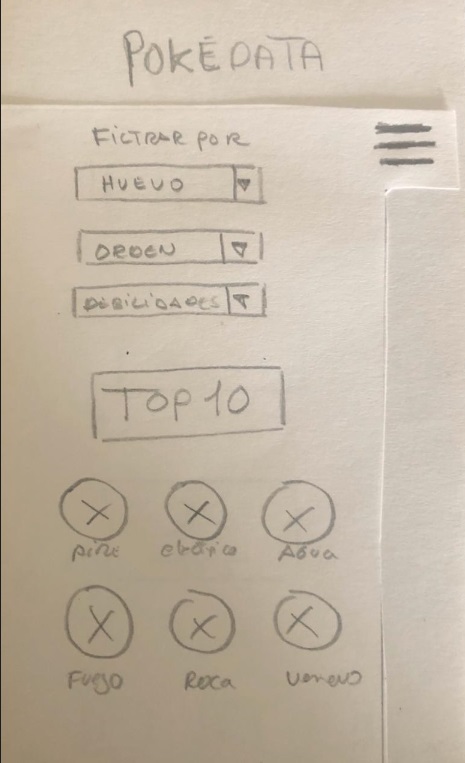 POKÉDATA
FILTRAR POR
HUEVO
ORDEN
DEBILIDADES
TOP 10
Aire eléctrico Agua
Fuego Roca veneno